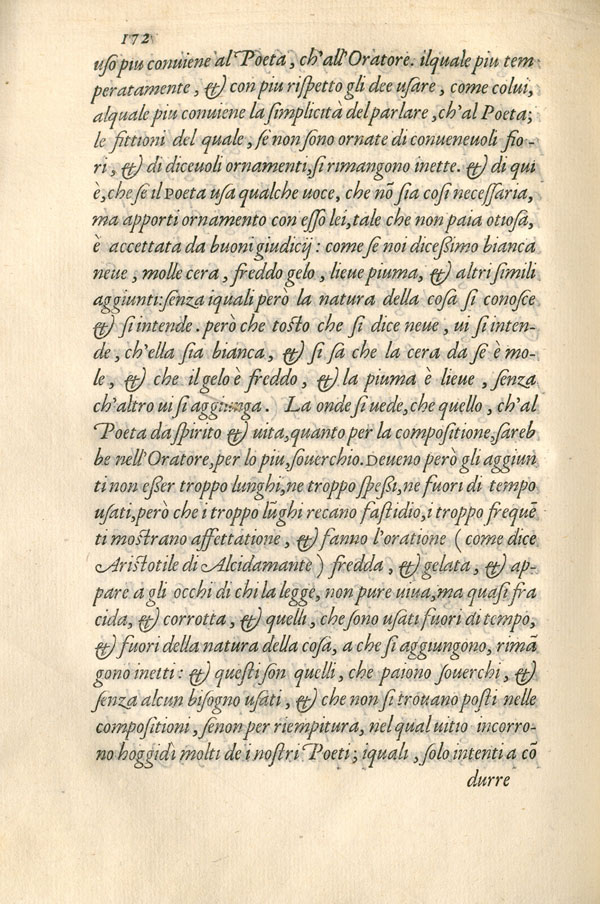 172
uso piu conuiene al Poeta, ch'all'Oratore. ilquale piu tem
peratamente, & con piu rispetto gli dee usare, come colui,
alquale piu conuiene la simplicità del parlare, ch'al Poeta;
le fittioni del quale, se non sono ornate di conueneuoli fio-
ri, & di diceuoli ornamenti, si rimangono inette. & di qui
è, che se il Poeta usa qualche uoce, che nõ sia cosi necessaria,
ma apporti ornamento con esso lei, tale che non paia otiosa,
è accettata da buoni giudicij: come se noi dicessimo bianca
neue, molle cera, freddo gelo, lieue piuma, & altri simili
aggiunti: senza iquali però la natura della cosa si conosce
& si intende. però che tosto che si dice neue, ui si inten-
de, ch'ella sia bianca, & si sa che la cera da se è mo-
le, & che il gelo è freddo, & la piuma è lieue, senza
ch'altro ui si aggiunga. La onde si uede, che quello, ch'al
Poeta da spirito & uita, quanto per la compositione, sareb
be nell'Oratore, per lo piu, souerchio. Deueno però gli aggiun
ti non esser troppo lunghi, ne troppo spessi, ne fuori di tempo
usati, però che i troppo lũghi recano fastidio, i troppo frequẽ
ti mostrano affettatione, & fanno l'oratione (come dice
Aristotile di Alcidamante) fredda, & gelata, & ap-
pare a gli occhi di chi la legge, non pure uiua, ma quasi fra
cida, & corrotta, & quelli, che sono usati fuori di tempo,
& fuori della natura della cosa, a che si aggiungono, rimã
gono inetti: & questi son quelli, che paiono souerchi, &
senza alcun bisogno usati, & che non si trouano posti nelle
compositioni, senon per riempitura, nel qual uitio incorro-
no hoggidì molti de i nostri Poeti; iquali, solo intenti a cõ
durre